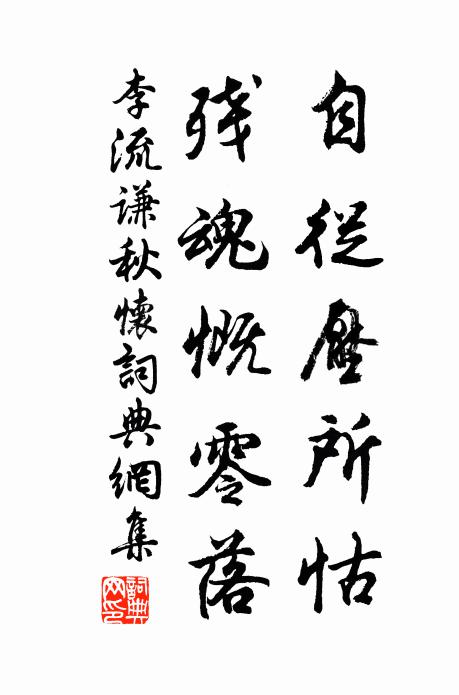 自從壓所怙
残魂慨零落
李流謙秋懷詞典網集
詞典網印